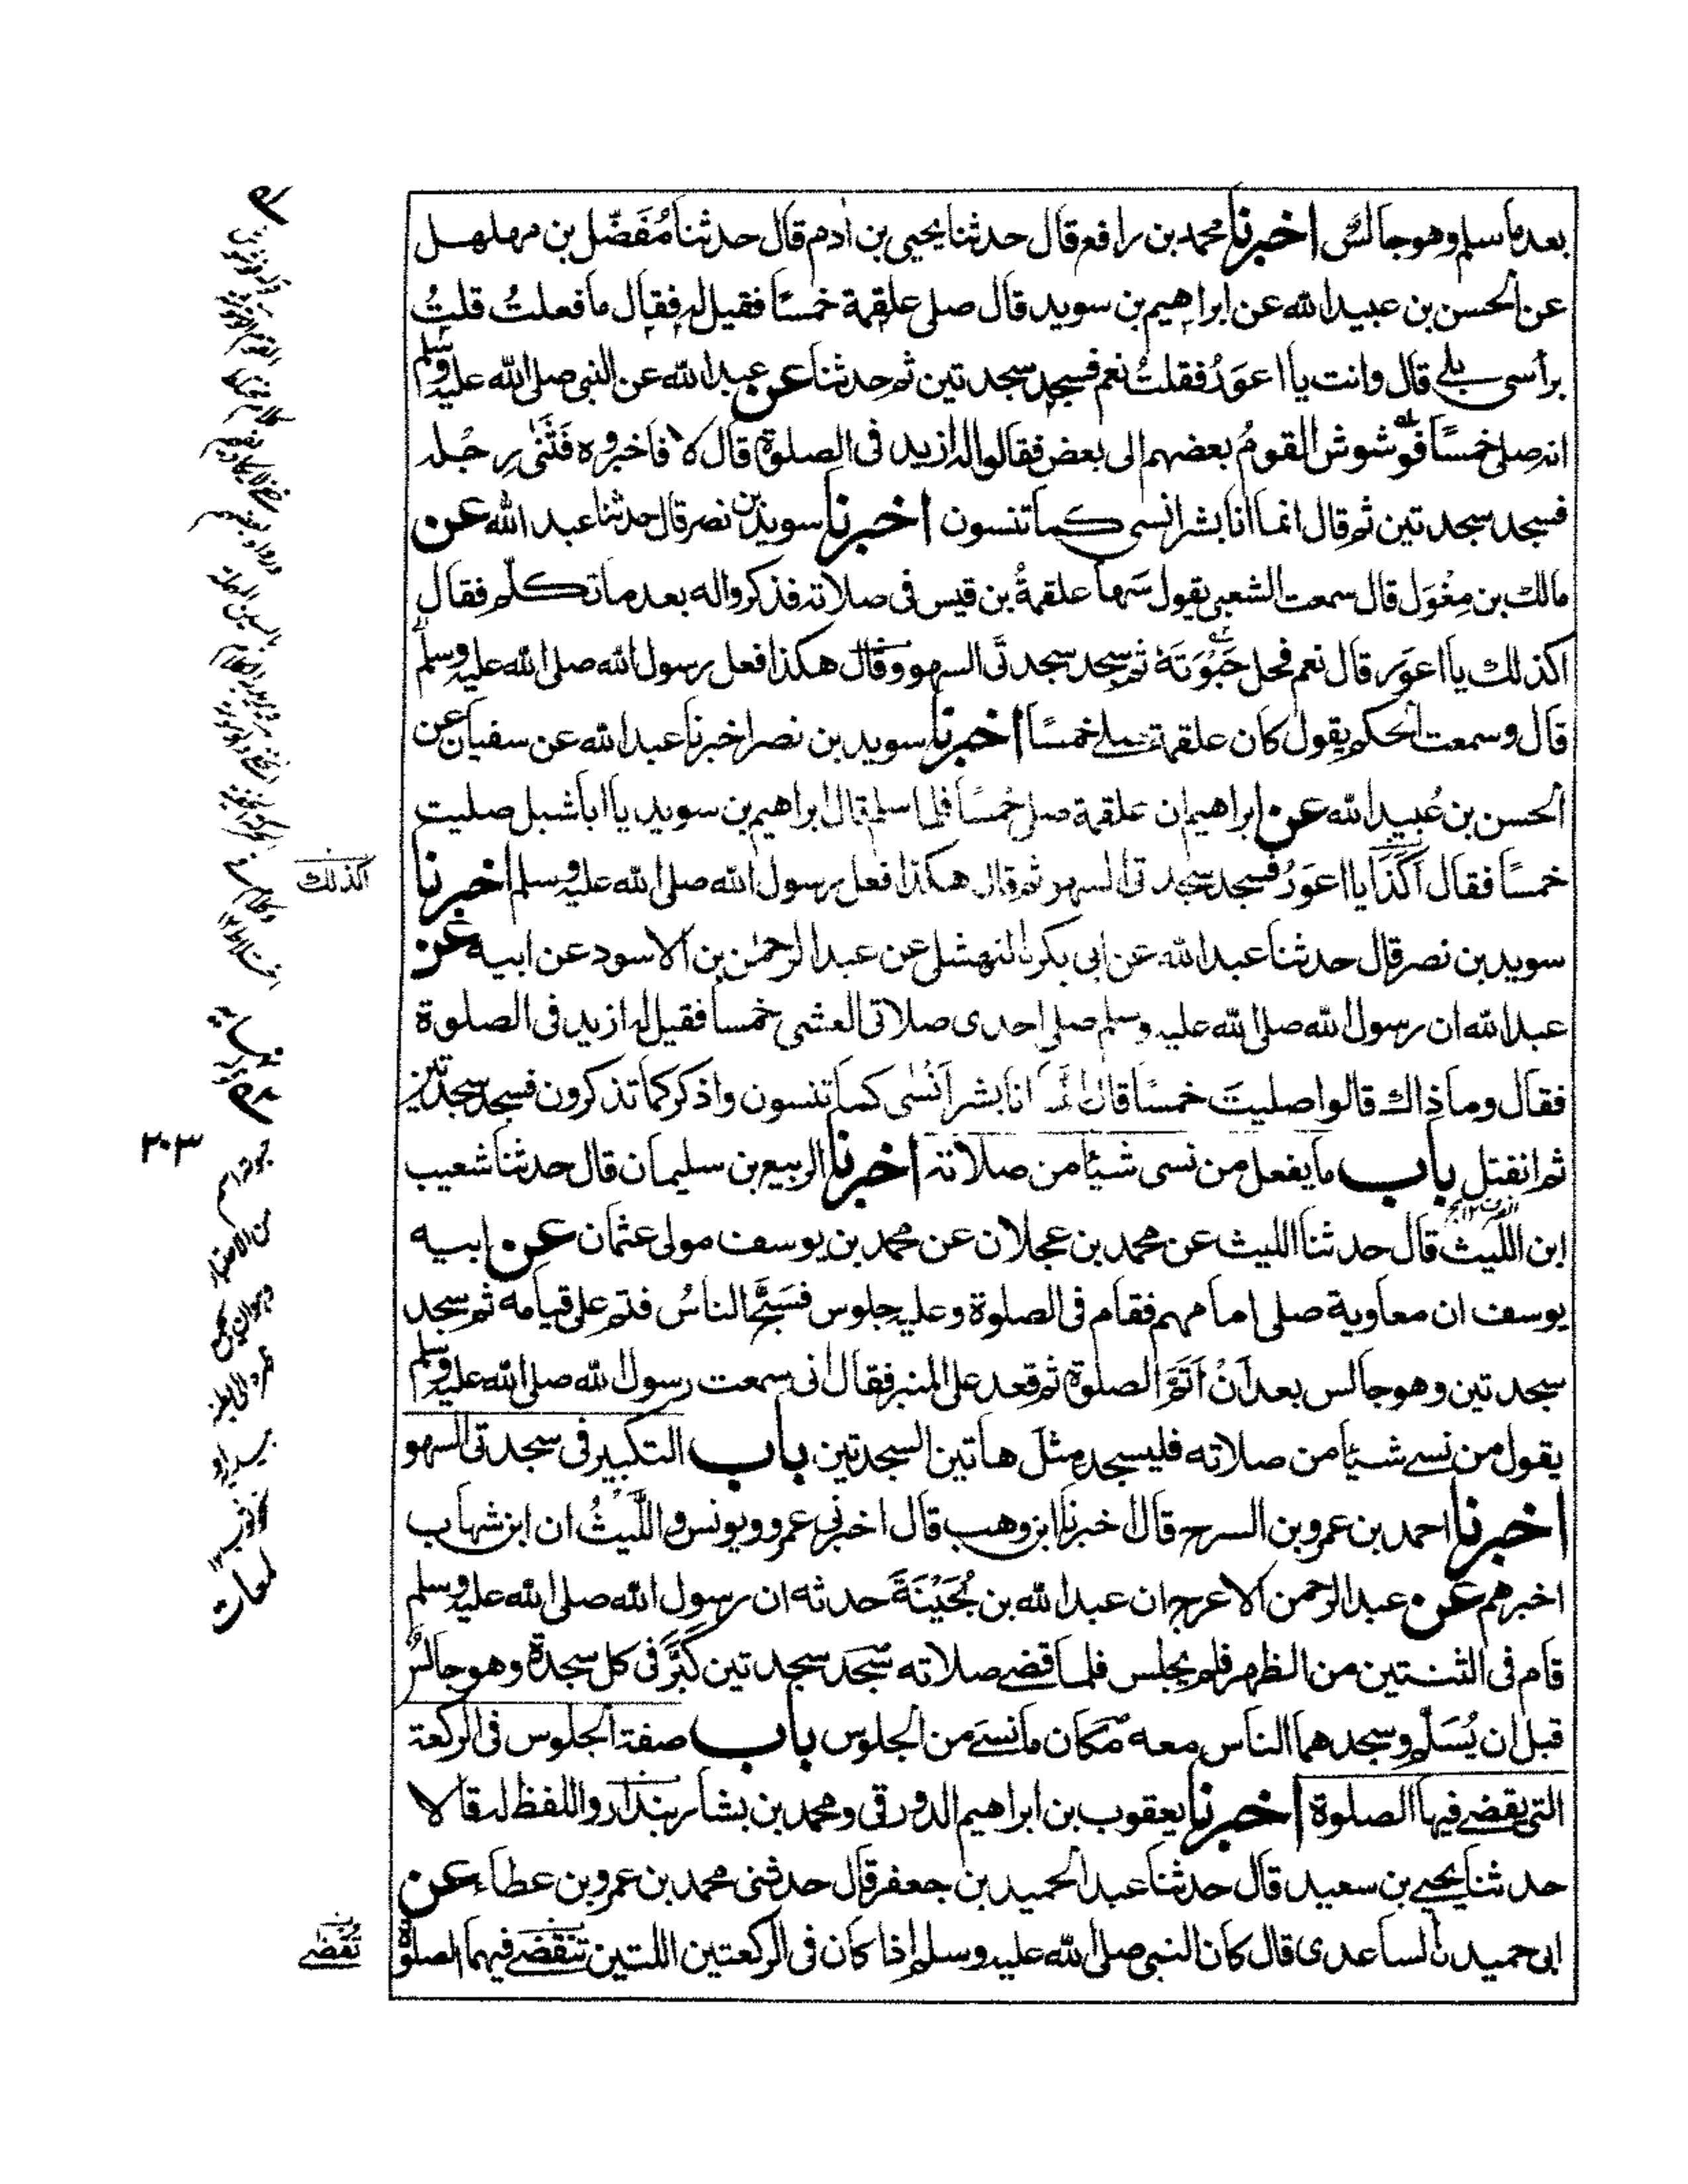 بعد ما سلم وهو جالسٌ اخبرنا محمد بن رافع قال حدثنا يحيى بن اٰدم قال حدثنا مُفَضّل بن مهلهل
عن الحسن بن عبيد الله عن ابراهيم بن سويد قال صلى علقمة خمسًا فقيل له فقال ما فعلتُ قلتُ
برأسى بلى قال وانت يا اعوَرُ فقلتُ نعم فسجد سجدتين ثم حدثنا عن عبد الله عن النبى صلى الله عليه وسلم
انه صلى خمسًا فوشوش القومُ بعضهم الى بعض فقالوا له ازيد فى الصلوة قال لا فاخبروه فَثَنٰى رِجْله
فسجد سجدتين ثم قال انما انا بشر انسى كما تنسون اخبرنا سويد بن نصر قال حدثنا عبد الله عن
مالك بن مِغْوَل قال سمعت الشعبى يقول سَها علقمةُ بن قيس فى صلاته فذكروا له بعد ما تكلّم فقال
اكذلك يا اعوَر قال نعم فحل حَبْوَتَهٗ ثم سجد سجدتَى السهو وقال هكذا فعل رسول الله صلى الله عليه وسلم
قال وسمعت الحكم يقول كان علقمة صلى خمسًا اخبرنا سويد بن نصر اخبرنا عبد الله عن سفيان عن
الحسن بن عُبيد الله عن ابراهيم ان علقمة صلى خمسًا فلما سلم قال ابراهيم بن سويد يا ابا شبل صليت
خمسًا فقال اَكَذَا يا اعوَرُ فسجد سجدتى السهو ثم قال هكذا فعل رسول الله صلى الله عليه وسلم اخبرنا
سويد بن نصر قال حدثنا عبد الله عن ابى بكر النهشلى عن عبد الرحمٰن بن الاسود عن ابيه عن
عبد الله ان رسول الله صلى الله عليه وسلم صلى احدى صلاتى العشى خمسا فقيل له ازيد فى الصلوة
فقال وما ذاك قالوا صليتَ خمسًا قال انما انا بشر اَنْسٰى كما تنسون واذكر كما تذكرون فسجد سجدتين
ثم انفتل باب ما يفعل من نسى شيئا من صلاته اخبرنا الربيع بن سليمان قال حدثنا شعيب
ابن الليث قال حدثنا الليث عن محمد بن عجلان عن محمد بن يوسف مولى عثمان عن ابيه
يوسف ان معاوية صلى امامهم فقام فى الصلوة وعليه جلوس فسَبَّحَ الناسُ فتم على قيامه ثم سجد
سجدتين وهو جالس بعد اَنْ اَتَمَّ الصلوة ثم قعد على المنبر فقال انى سمعت رسول الله صلى الله عليه وسلم
يقول من نسى شيئا من صلاته فليسجد مثلَ هاتين السجدتين باب التكبير فى سجدتى السهو
اخبرنا احمد بن عمرو بن السرح قال اخبرنا ابن وهب قال اخبرنى عمرو ويونس والليثُ ان ابن شهاب
اخبرهم عن عبد الرحمن الاعرج ان عبد الله بن بُحَيْنَةَ حدثه ان رسول الله صلى الله عليه وسلم
قام فى الثنتين من الظهر فلم يجلس فلما قضى صلاته سَجَدَ سجدتين كَبَّرَ فى كل سجدة وهو جالسٌ
قبل ان يُسَلّم وسجدهما الناس معه مكان ما نسى من الجلوس باب صفة الجلوس فى الركعة
التى يقضى فيها الصلوة اخبرنا يعقوب بن ابراهيم الدورقى ومحمد بن بشار بندار واللفظ له قالا
حدثنا يحيى بن سعيد قال حدثنا عبد الحميد بن جعفر قال حدثنى محمد بن عمرو بن عطاء عن
ابى حميد الساعدى قال كان النبى صلى الله عليه وسلم اذا كان فى الركعتين اللتين تنقضى فيهما الصلوة
اكذلك
٢٠٣
تقضى